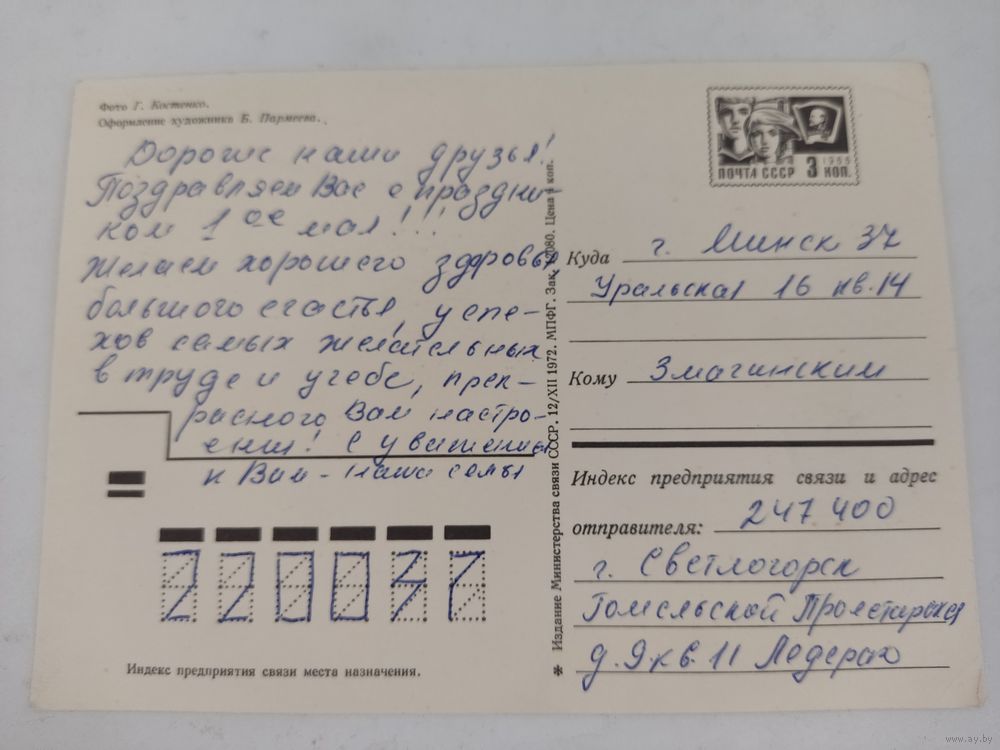 Фото Г. Костенко.
Оформление художника Б. Пармеева.
Дорогие наши друзья!
Поздравляем Вас с праздни-
ком 1 ое мая!!!
Желаем хорошего здоровья
большого счастья, успе-
хов самых желательных
в труде и учебе, прек-
расного Вам настро-
ения! С уважением
к Вам - наша семья
Индекс предприятия связи места назначения.
220037
✱ Издание Министерства связи СССР. 12/XII 1972. МПФГ. Зак. 1080. Цена 4 коп.
ПОЧТА СССР 3 КОП.
1966
Куда г. Минск 37
Уральская 16 кв. 14
Кому Змагинским
Индекс предприятия связи и адрес
отправителя: 247400
г. Светлогорск
Гомельской Пролетарская
д. 9 кв. 11
www.ay.by